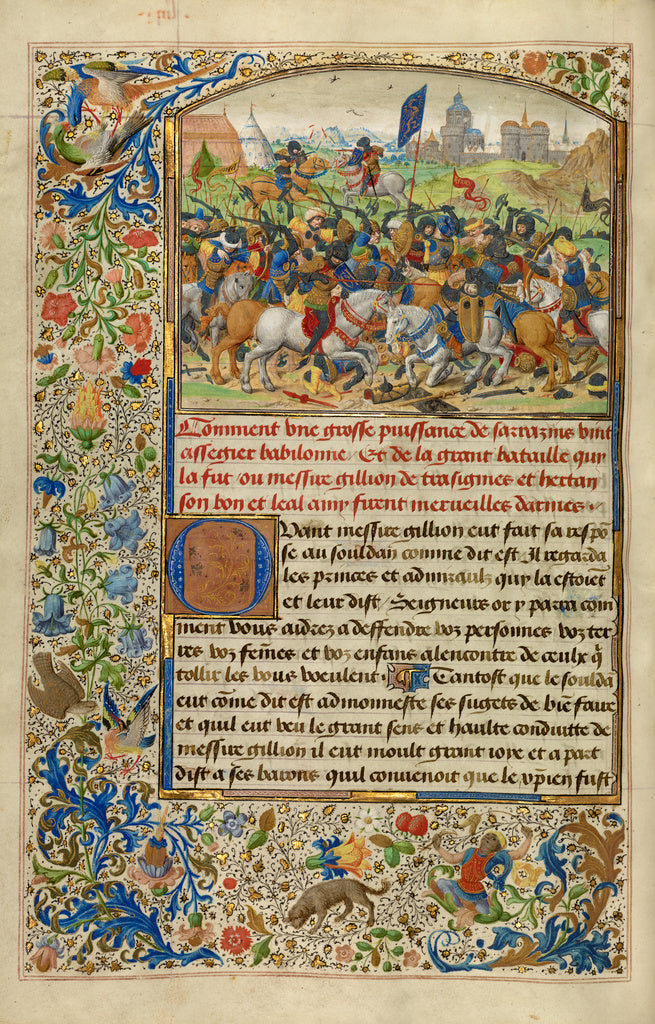 Comment vne grosse puissance de sarrazins vint
assegier babilonne. Et de la grant bataille quy
la fut ou messire gillion de trasignies et hertan
son bon et leal amy firent merueilles darmes.
Quant messire gillion eut fait sa respō
se au souldan comme dit est. Il regarda
les princes et admiraulz quy la estoiēt
et leur dist. Seigneurs or y parra com
ment vous aidrez a deffendre voz personnes voz ter
res voz fēmes et voz enfans alencontre de ceulx q̄
tollir les vous veulent. Tantost que le soulda
eut cōme dit est admonneste ses sugets de biē faire
et quil eut veu le grant sens et haulte conduitte de
messire gillion il eut moult grant ioye et a part
dist a ses barons quil conuenoit que le xp̄ien fust